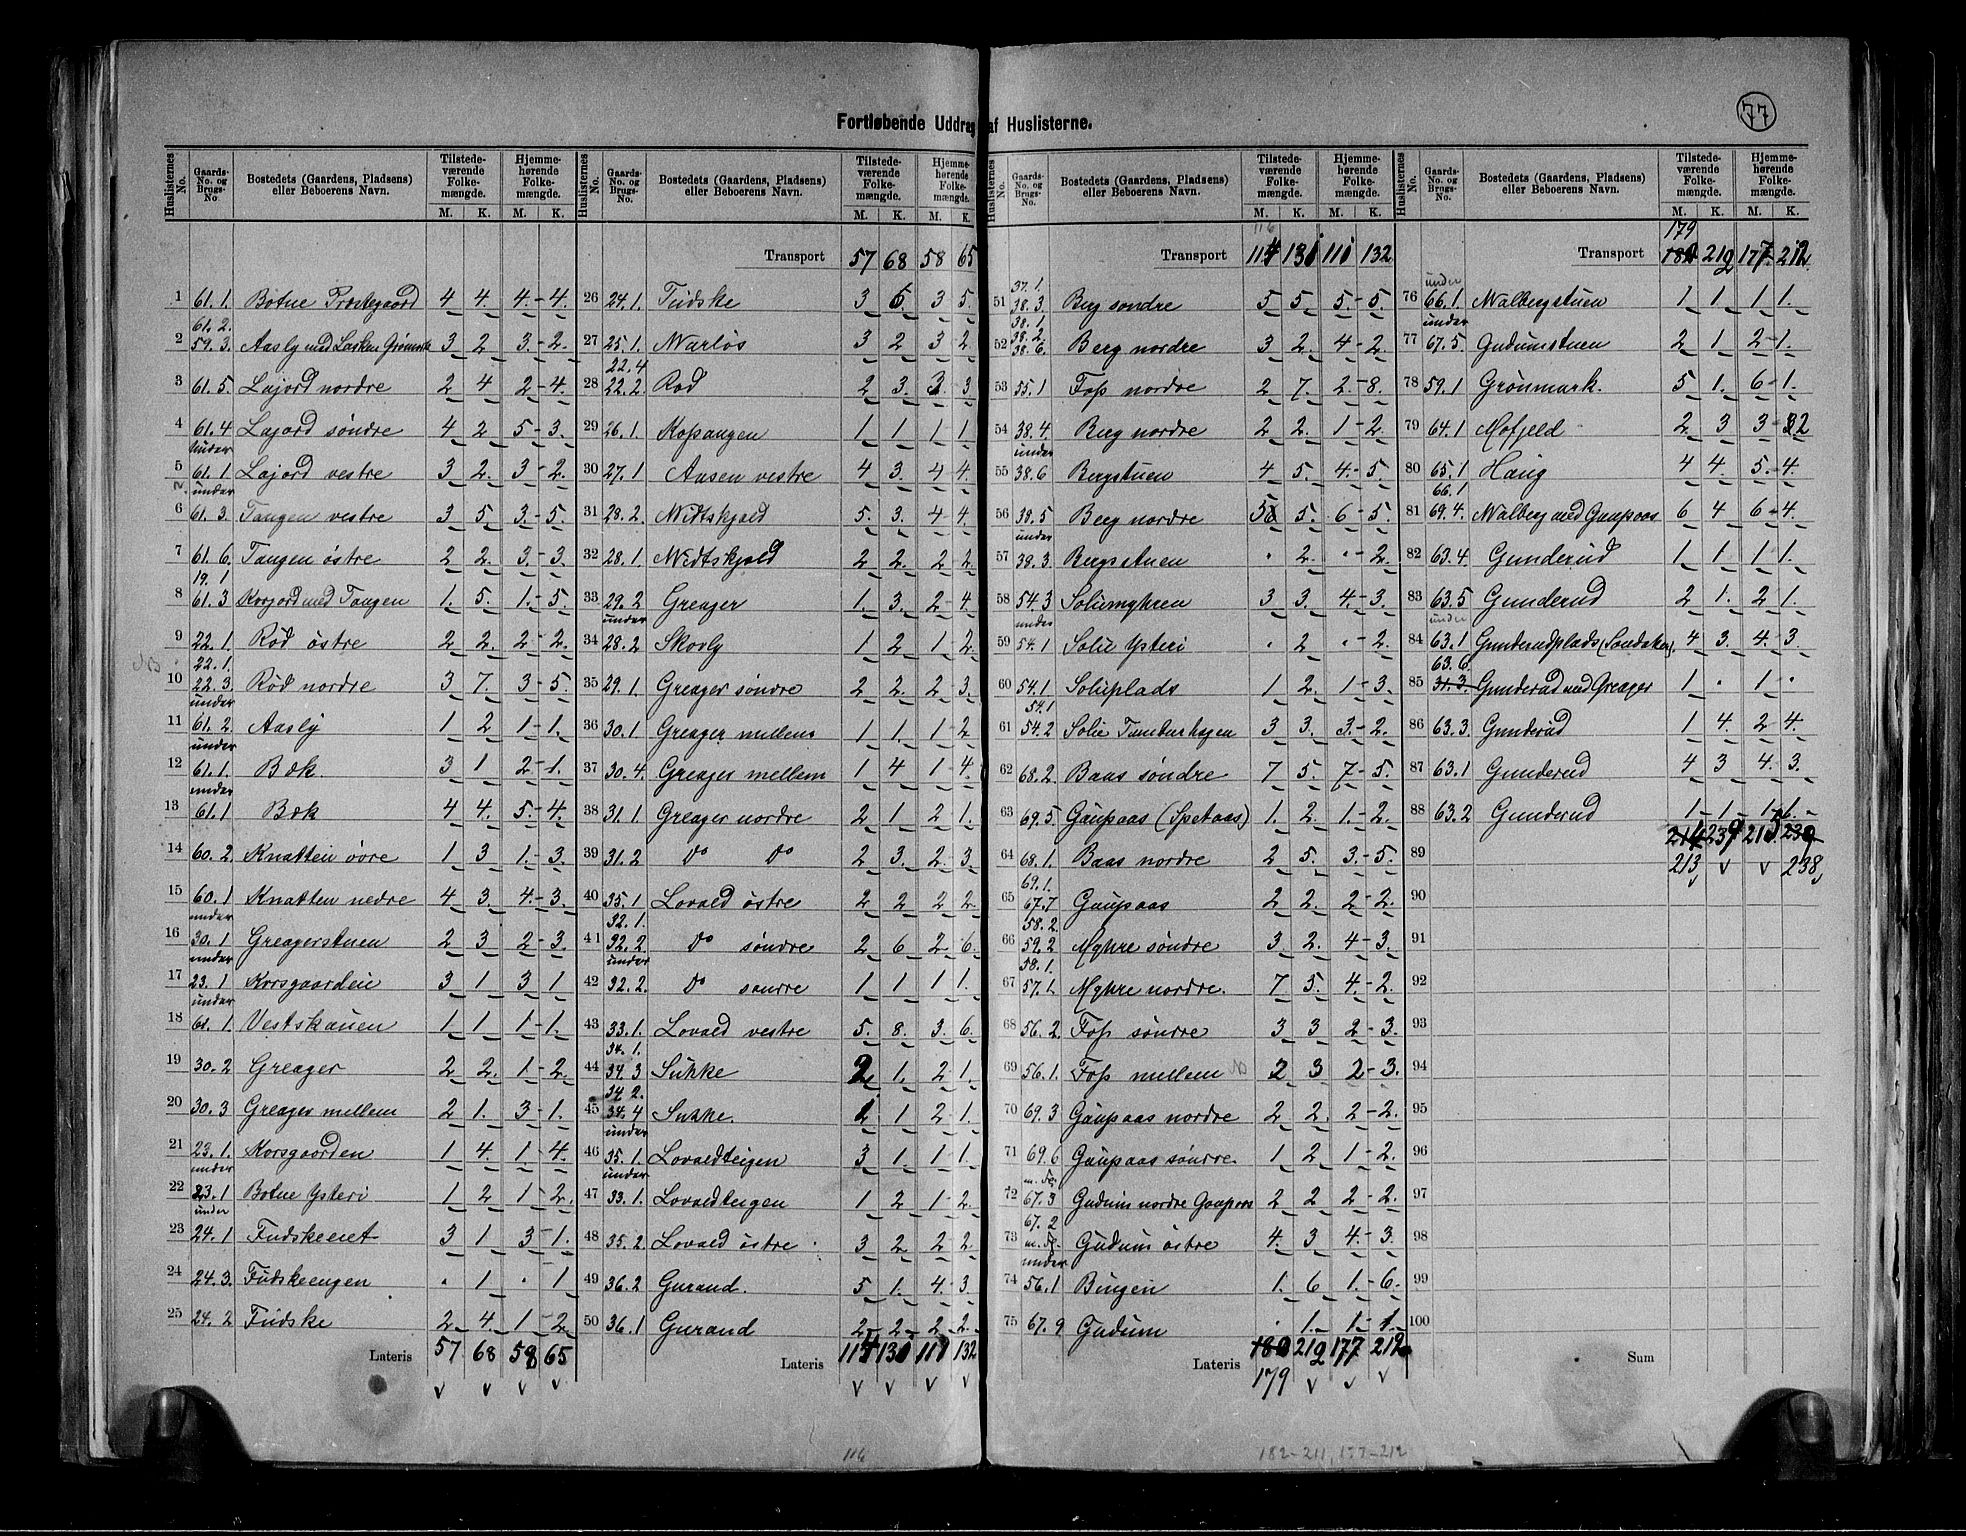 77
Fortløbende Uddrag af Huslisterne.
Huslisternes No. Gaards-No. og Brugs-No Bostedets (Gaardens, Pladsens) eller Beboerens Navn. Tilstedeværende Folkemængde. M. K. Hjemmehørende Folkemængde. M. K.
1 61.1. Botne Præstegaard 4 4. 4.-4.
2 61.2. 59.3. Aasly med 3 2 3.-2.
3 61.5 Lajord nordre 2 4 2-4.
4 61.4 Lajord søndre 4 2 5-3.
5 under 61.1 Lajord vestre 3 2. 3-2.
6 under 61.3. Tangen vestre 3 5. 3.-5.
7 61.6. Tangen østre 2 2. 3.-3.
8 19.1 61.3 Korjord med Tangen 1. 5. 1.-5.
9 22.1. Rød østre 2 2. 2-2.
10 22.1. 22.3. Rød nordre 3 7. 3-5.
11 under 61.2. Aasly 1 2 1-1.
12 under 61.1. Bæk. 3 1 2-1.
13 under 61.1 Bæk 4 4. 5.-4.
14 60.2 Knatten övre 1 3 1.-3.
15 60.1 Knatten nedre 4 3. 4.-3.
16 under 30.1 Greagerstuen 2 3 2-3.
17 under 23.1 Korsgaarden 3 1 3 1
18 under 61.1. Vestskauen 1 1 1-1.
19 30.2 Greager 2 2. 1-2.
20 30.3 Greager mellem 2 1. 3-1.
21 23.1. Korsgaarden 1 4. 1-4.
22 under 23.1 Botne Ysteri 1 2 1-2.
23 under 24.1 Fudskeeiet 3 1 3-1.
24 24.3. Fudskeengen . 1 . 1
25 24.2 Fudske 2 4. 1-2.
Lateris 57 68 58 65
Huslisternes No. Gaards-No. og Brugs-No. Bostedets (Gaardens, Pladsens) eller Beboerens Navn. Tilstedeværende Folkemængde. M. K. Hjemmehørende Folkemængde. M. K.
Transport 57 68 58 65
26 24.1. Fudske 3 6 3 5.
27 25.1. Narløs 3 2 3 2.
28 22.4 22.2. Rød 2 3. 3. 3
29 26.1. Kopangen 1 1 1 1
30 27.1 Aasen vestre 4 3. 4 4.
31 28.2. Midtskjold 5. 3. 4 4.
32 28.1. Midtskjold 2 2. 2 2.
33 29.2 Greager 1. 3. 2-4.
34 under 28.2 Skovly 1 2 1-2.
35 29.1. Greager søndre 2 2. 2-3.
36 30.1 Greager mellem 1 1. 1-2
37 30.4. Greager mellem 1 4 1-4.
38 31.1 Greager nordre 2 1 2 1.
39 31.2 Do Do 2 3. 2. 3.
40 35.1 Lovald östre 2 2 2 2.
41 32.1. 32.2 Do søndre 2 6 2-6.
42 under 32.2. Do søndre 1 1 1 1.
43 33.1. Lovald vestre 5. 8. 3. 6.
44 34.1. 34.3 Sukke 2 1. 2 1.
45 34.2. 34.4 Sukke. 1 2 1.
46 under 35.1. Lovaldteigen 3 1. 1 1.
47 under 33.1. Lovaldteigen 1 2 1-2.
48 35.2. Lovald østre 3 2. 2 2.
49 36.2 Gurand. 5 1. 4. 3.
50 36.1 Gurand 2-2. 2-2.
Lateris 132
116
Huslisternes No. Gaards-No. og Brugs-No. Bostedets (Gaardens, Pladsens) eller Beboerens Navn. Tilstedeværende Folkemængde. M. K. Hjemmehørende Folkemængde. M. K.
116
Transport 132
51 37.1. 38.3. Berg søndre 5 5. 5.-5
52 38.1 38.2. 38.6. Berg nordre 3 2. 4-2.
53 55.1 Fos nordre 2 7. 2.-8.
54 38.4. Berg nordre 2 2. 1-2.
55 under 38.6 Bergstuen 4 5. 4.-5.
56 38.5 Berg nordre 5. 6-5.
57 under 38.3. Bergsstuen . 2. .-2.
58 54.3 Soliemyhren 3 3. 4.-3.
59 under 54.1 Solie Ysteri . 2 .-2.
60 54.1 Solieplads 1 2. 1-3.
61 54.1 54.2 Solie Tamburhagen 3 3. 3.-2.
62 68.2. Baas søndre 7 5. 7-5.
63 69.5. Gaupaas (Spetaas) 1. 2. 1.-2.
64 68.1. Baas nordre 2 5. 3.-5.
65 69.1. 67.7 Gaupaas 2 2. 2-2.
66 58.2. 59.2 Myhre søndre 3 2. 4-3.
67 58.1. 57.1. Myhre nordre. 7 3. 4-2.
68 56.2. Fos søndre 3 3 2-3.
69 56.1. Fos mellem 2 3 2-3.
70 69.3 Gaupaas nordre 2 2. 2-2.
71 69.6 Gaupaas søndre. 1 2 1-2.
72 67.3 Gudum nordre Gaupaas 2 2 2-2.
73 67.2 Gudum østre 4. 3 4.-3.
74 under 56.1 Bingen 1. 6 1.-6.
75 67.9 Gudum . 1. 1-1.
Lateris 180 212 177 212
179
182-211, 177-212
Huslisternes No. Gaards-No. og Brugs-No. Bostedets (Gaardens, Pladsens) eller Beboerens Navn. Tilstedeværende Folkemængde. M. K. Hjemmehørende Folkemængde. M. K.
179
Transport 212 177 212.
76 under 66.1 Valbergstuen 1 1 1 1.
77 under 67.5. Gudumstuen 2 1 2-1.
78 59.1 Grönmark. 5 1. 6-1.
79 64.1 Mofjeld 2 3 3-2
80 65.1 Haug 4 4. 5.-4.
81 66.1 69.4. Valberg med Gaupaas 6 4 6-4.
82 63.4. Gunderud 1 1 1 1.
83 63.5 Gunderud 2 1. 2 1.
84 under 63.1 Gunderudplads (Sandaker). 4 3. 4.-3.
85 63.6. 31.3. Gunderud med Greager 1 . 1 .
86 63.3 Gunderud 1 4. 2 4.
87 63.1 Gunderud 4 3 4. 3.
88 63.2 Gunderud 1-1. 1-1.
214 239 215 239
89 213 238
90
91
92
93
94
95
96
97
98
99
100
Sum